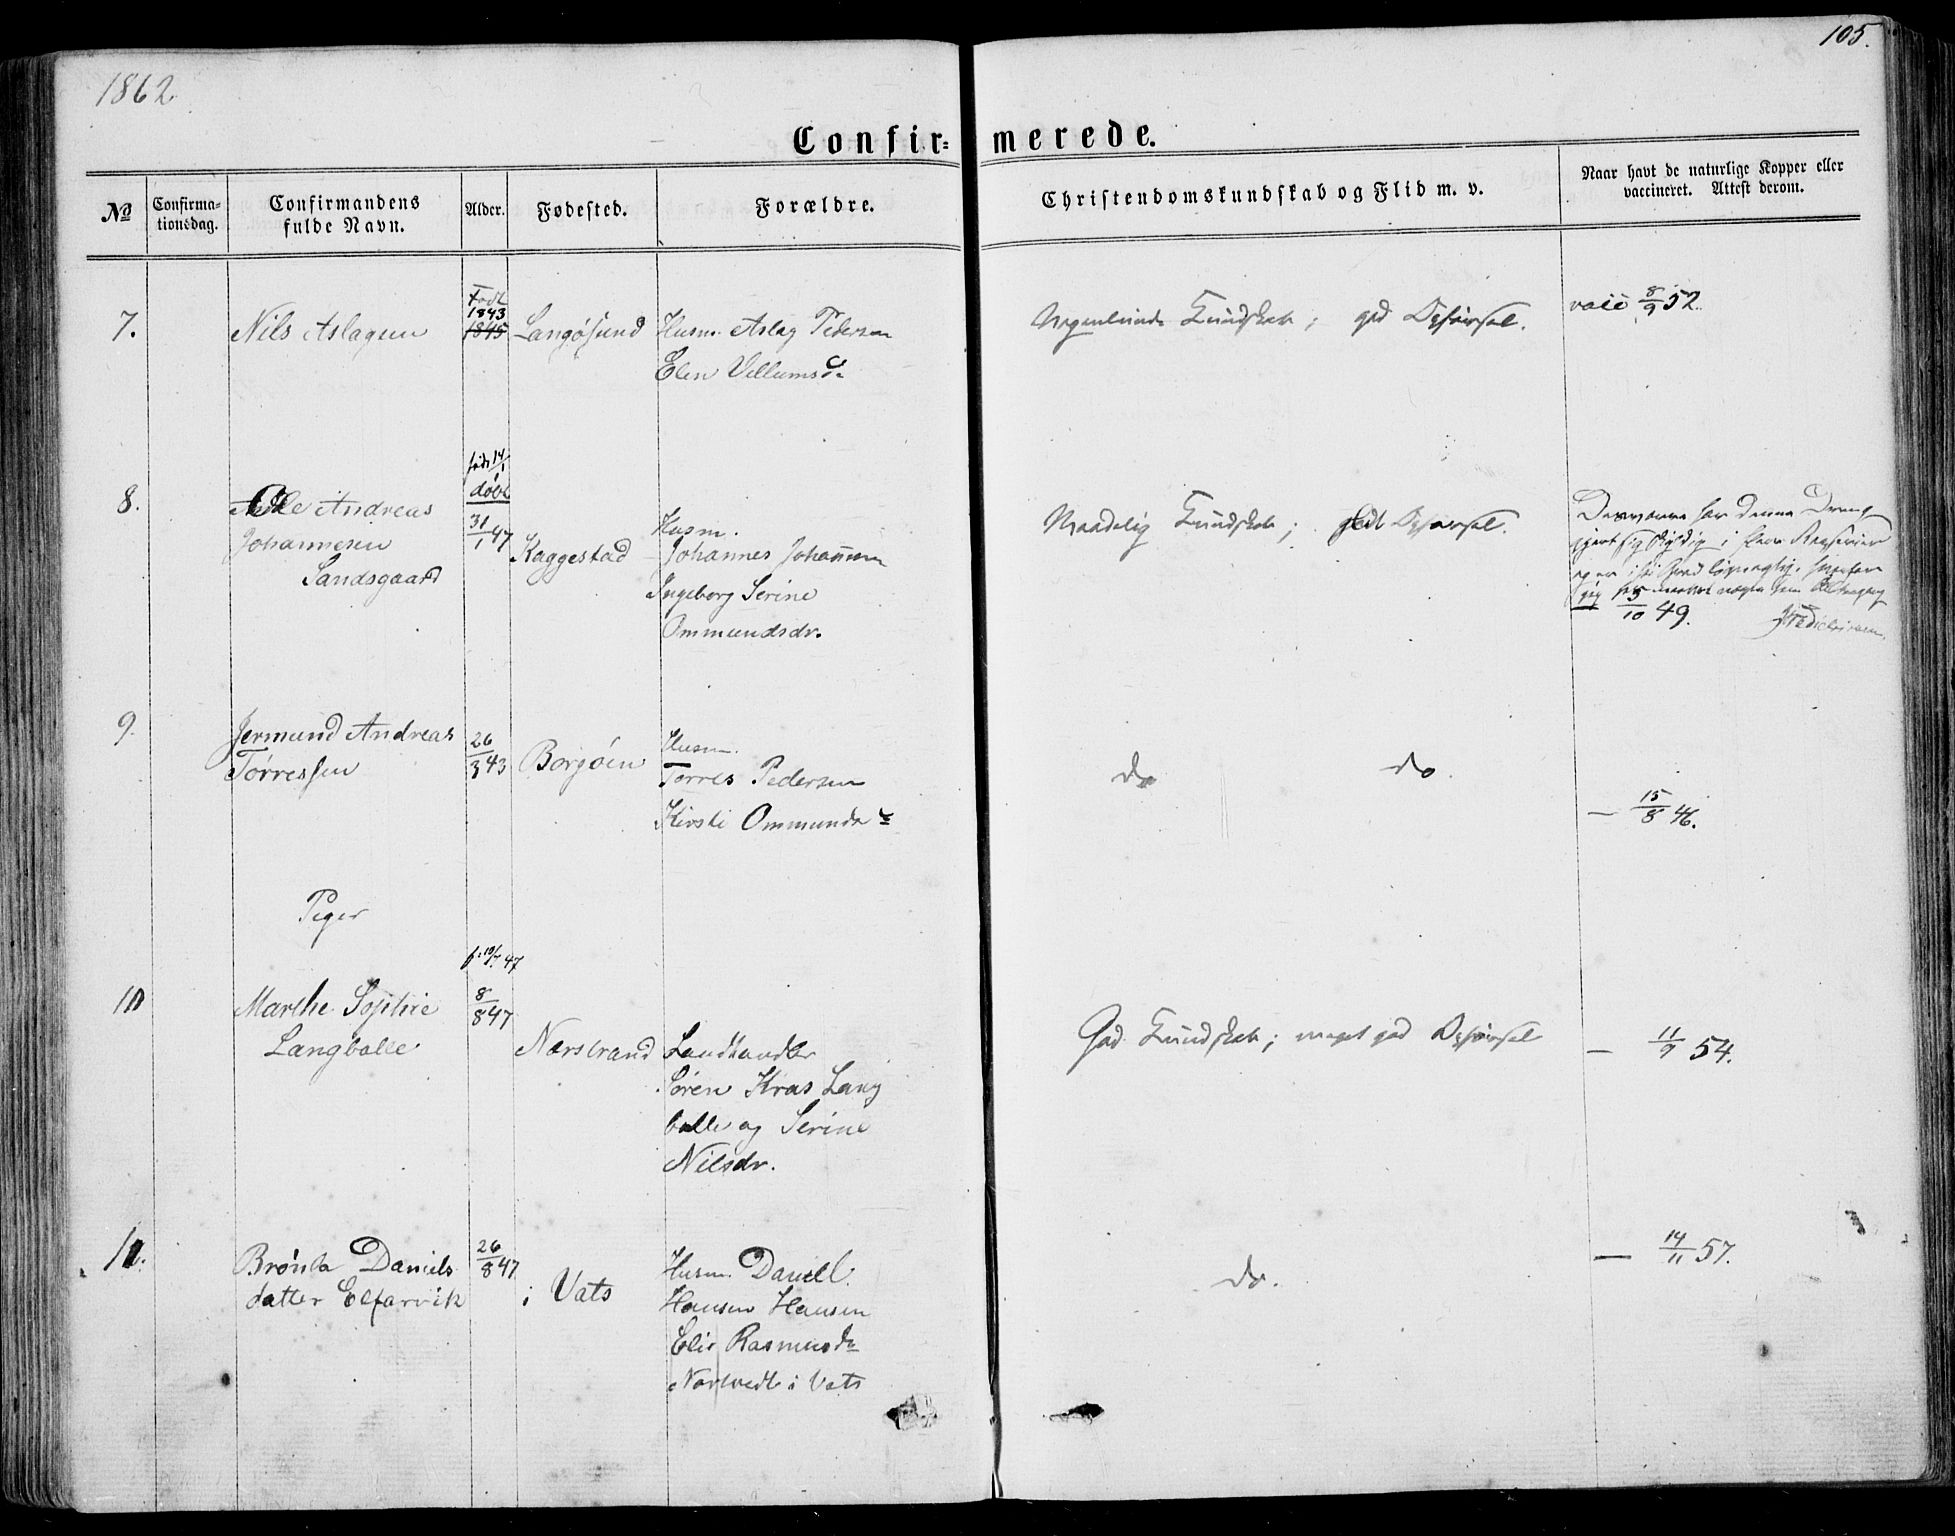 1862
105.
Confir-
merede.
No
Confirma-
tionsdag.
Confirmandens
fulde Navn.
Alder.
Fødested.
Forældre.
Christendomskundskab og Flid m. v.
Naar havt de naturlige Kopper eller
vaccineret. Attest derom.
7.
Nils Aslagsen
Født
1843
1845
Langøsund
Husm. Aslag Pedersen
Elen Villumsd.
Kundskab; god Opførsel.
vacc 8/9 52.
8.
Ole Andreas
Johannesen
Sandsgaard
født 14/1
døbt
31/1 47
Kaggestad
Husm.
Johannes Johannesen
Ingeborg Serine
Ommundsdr.
Maadelig Kundskab; god Opførsel.
Desværre har denne Dreng
gjort sig skyldig i flere
10 49.
9.
Jermund Andreas
Tørressen
26/3 43
Borgøen
Husm.
Tørres Pedersen
Kirsti Ommundsd
do do.
— 15/8 46.
Piger
10
Marthe Sophie
Langballe
f: 10/7 47
8/8 47
Nærstrand
Landhandler
Søren Kras Lang
balle og Serine
Nilsdr.
God Kundskab; meget god Opførsel
— 11/9 54.
11.
Brønla Daniels
datter Elfarvik
26/8 47
i Vats
Husm. Daniel
Hansen Hansen
Elie Rasmusd
i Vats
do.
— 14/11 57.